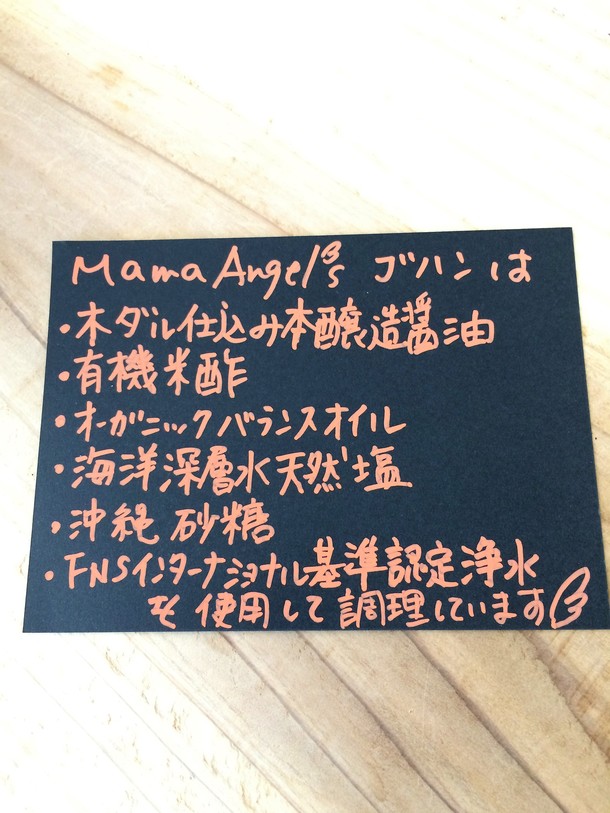 Mama Angel's ゴハンは
・木ダル仕込み本醸造醤油
・有機米酢
・オーガニックバランスオイル
・海洋深層水天然塩
・沖縄砂糖
・FNSインターナショナル基準認定浄水
を使用して調理しています